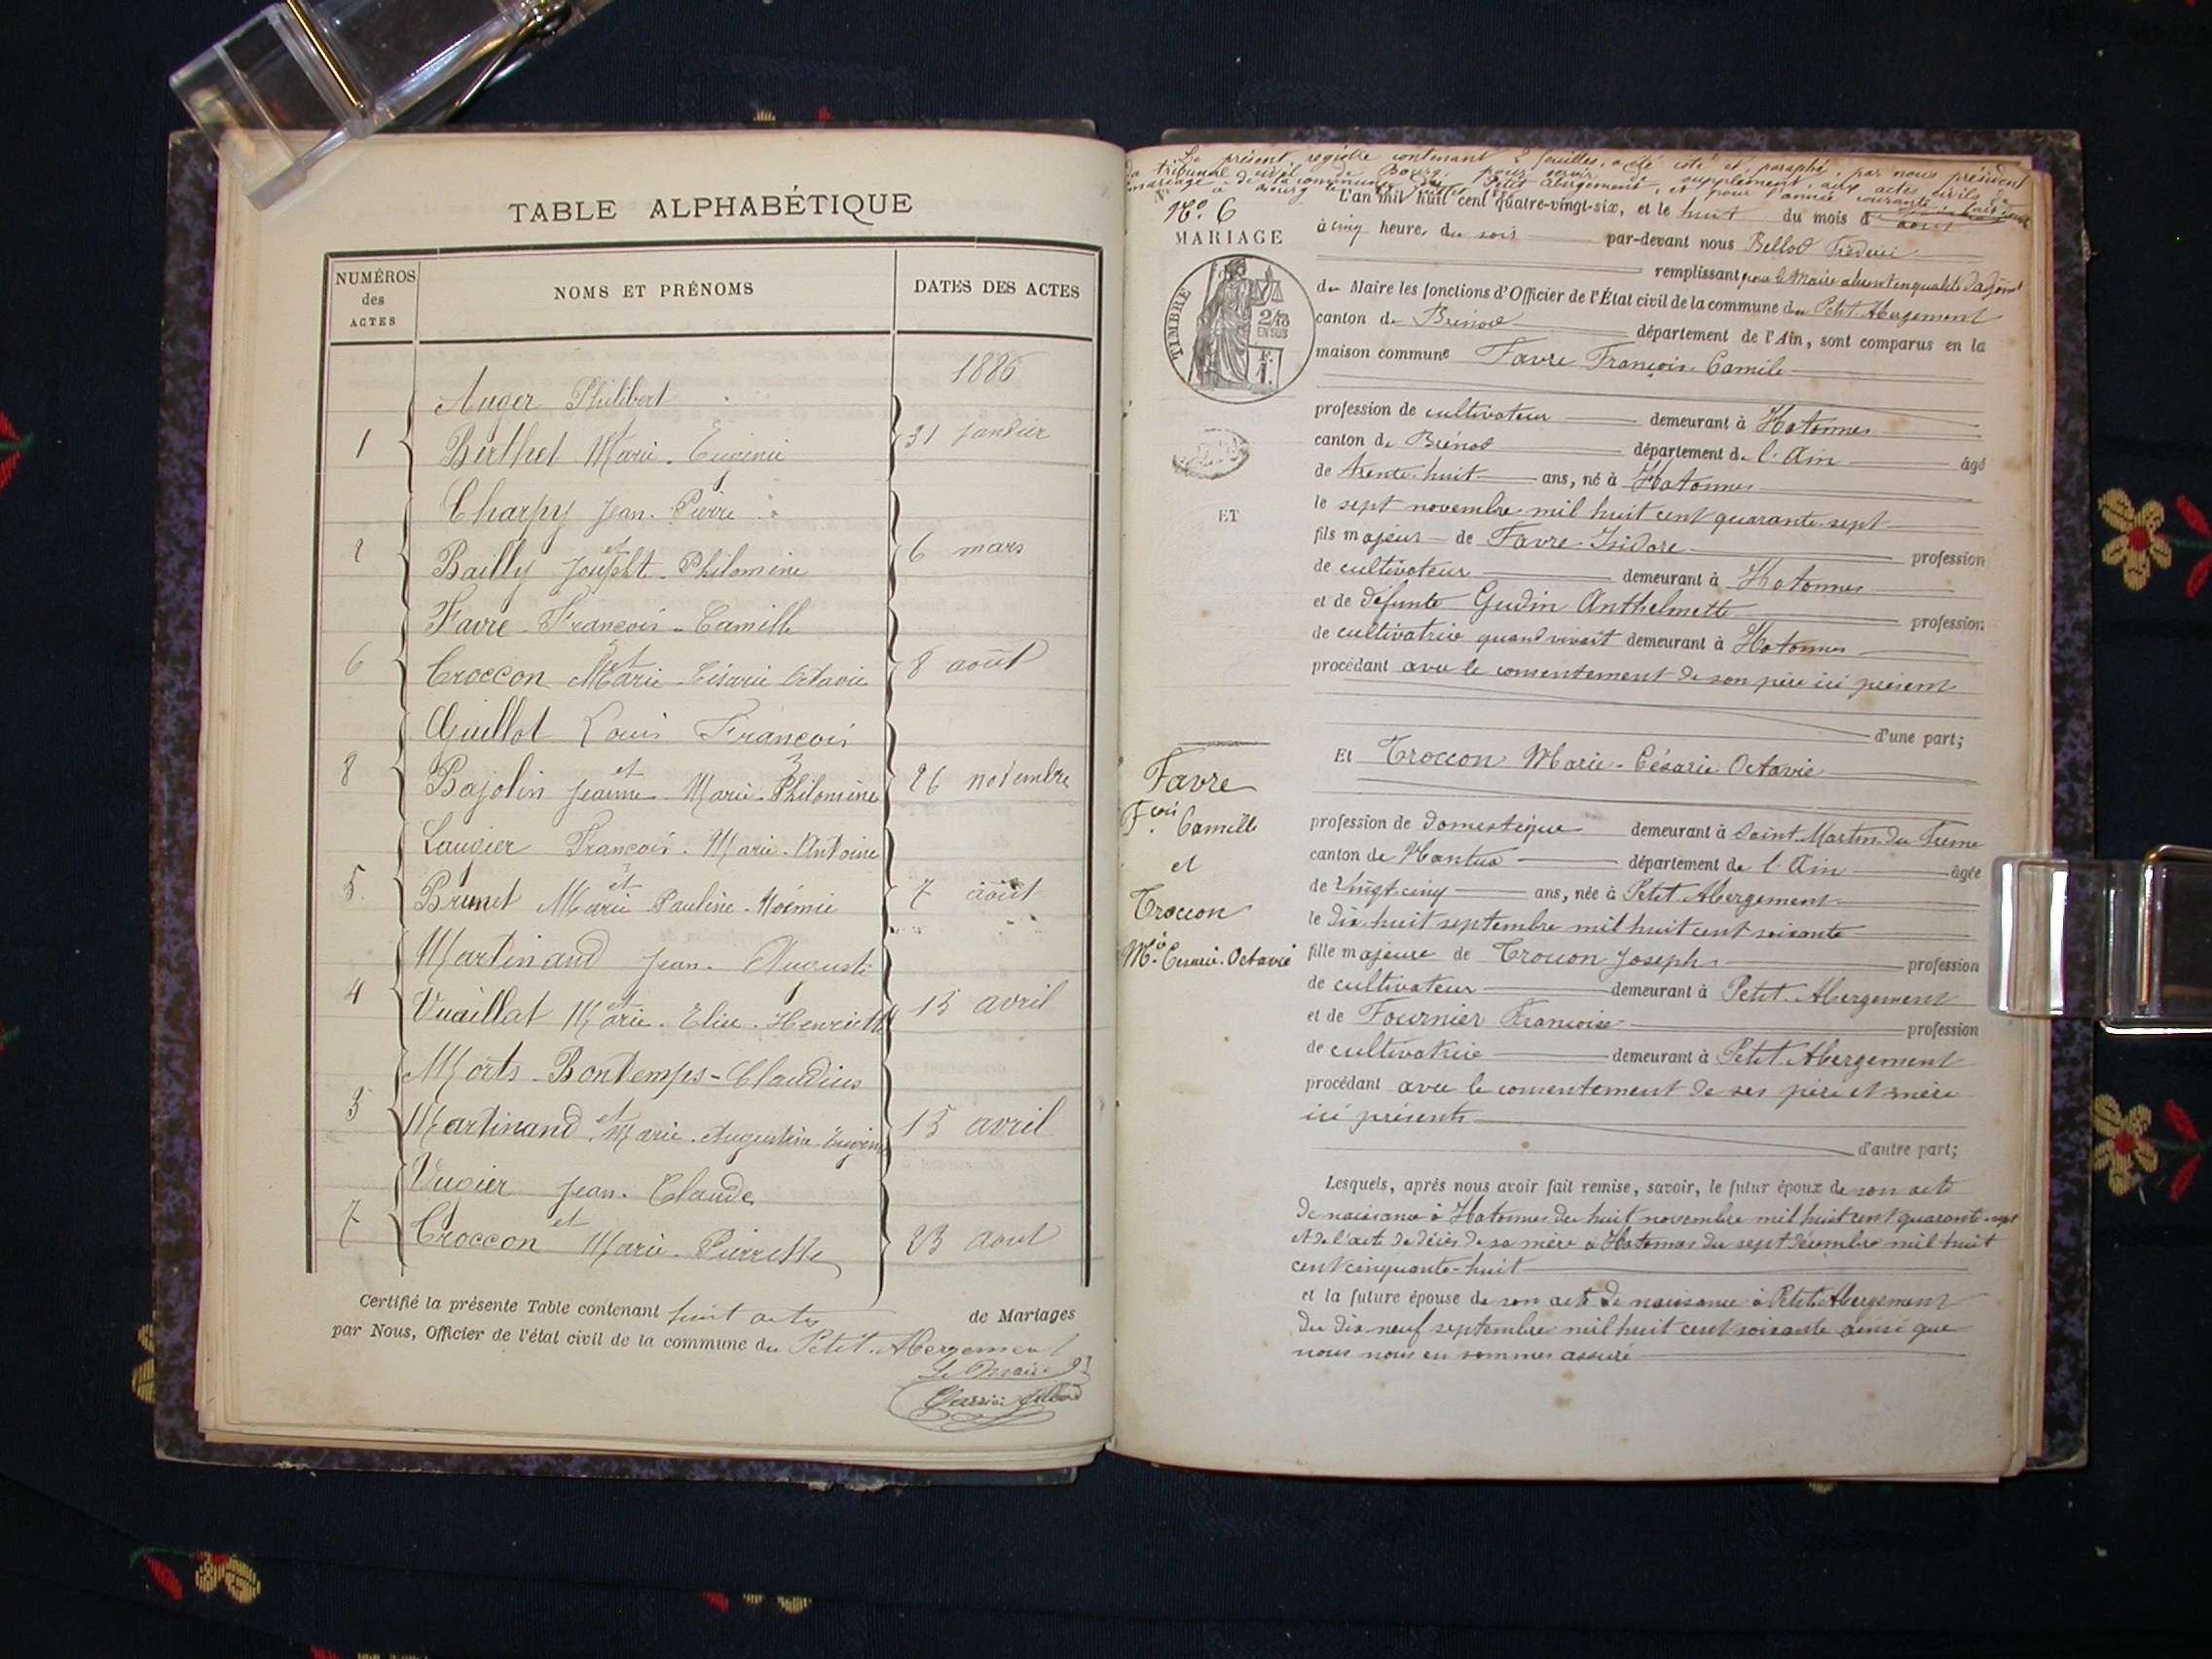 TABLE ALPHABÉTIQUE
NUMÉROS des ACTES
NOMS ET PRÉNOMS
DATES DES ACTES
1886
Auger Philibert
1 Berthet Marie-Eugénie 31 janvier
Charpy Jean-Pierre
et
2 Bailly Josephte-Philomène 6 mars
Favre-François-Camille
et
6 Troccon Marie-Césarie Octavie 8 août
Guillot Louis François
et
8 Bajolin Jeanne-Marie-Philomène 26 novembre
Lauvier François-Marie-Antoine
et
5 Brunet Marie Pauline-Noémie 7 août
Martinand Jean-Auguste
et
4 Vuaillat Marie-Elise-Henriette 15 avril
Morts-Bontemps-Claudius
et
3 Martinand Marie-Augustine Eugénie 15 avril
Jean-Claude
et
7 Troccon Marie-Pierrette 23 aout
Certifié la présente Table contenant huit actes de Mariages
par Nous, Officier de l'état civil de la commune du Petit-Abergement
Le Maire
Le présent registre contenant 2 feuilles, a été coté et paraphé, par nous président
du tribunal civil de Bourg, pour servir de supplément, aux actes civils de
mariage de la commune du Petit Abergement, et pour l'année courante
à Bourg
N° 6
MARIAGE
TIMBRE
2/10
EN SUS
F.
1.
L'an mil huit cent quatre-vingt-six, et le huit du mois d'août
à cinq heures du soir par-devant nous Bellod Frédéric
remplissant pour le Maire absent en qualité d'adjoint
du Maire les fonctions d'Officier de l'État civil de la commune du Petit Abergement
canton de Brénod département de l'Ain, sont comparus en la
maison commune Favre François Camile
profession de cultivateur demeurant à Hotonnes
canton de Brénod département de l'Ain âgé
de trente-huit ans, né à Hotonnes
le sept novembre mil huit cent quarante-sept
ET
fils majeur de Favre Isidore profession
de cultivateur demeurant à Hotonnes
et de défunte Gudin Anthelmette profession
de cultivatrice quand vivait demeurant à Hotonnes
procédant avec le consentement de son père ici présent
d'une part;
Et Troccon Marie-Césarie Octavie
Favre
Fçois Camille
et
Troccon
Mie Césarie-Octavie
profession de domestique demeurant à Saint-Martin-du-Frêne
canton de Nantua département de l'Ain âgée
de vingt-cinq ans, née à Petit Abergement
le dix-huit septembre mil huit cent soixante
fille majeure de Troccon Joseph profession
de cultivateur demeurant à Petit-Abergement
et de Fournier Françoise profession
de cultivatrice demeurant à Petit Abergement
procédant avec le consentement de ses père et mère
ici présents
d'autre part;
Lesquels, après nous avoir fait remise, savoir, le futur époux de son acte
de naissance à Hotonnes du huit novembre mil huit cent quarante-sept
et de l'acte de décès de sa mère à Hotonnes du sept décembre mil huit
cent cinquante-huit
et la future épouse de son acte de naissance à Petit Abergement
du dix-neuf septembre mil huit cent soixante ainsi que
nous nous en sommes assuré